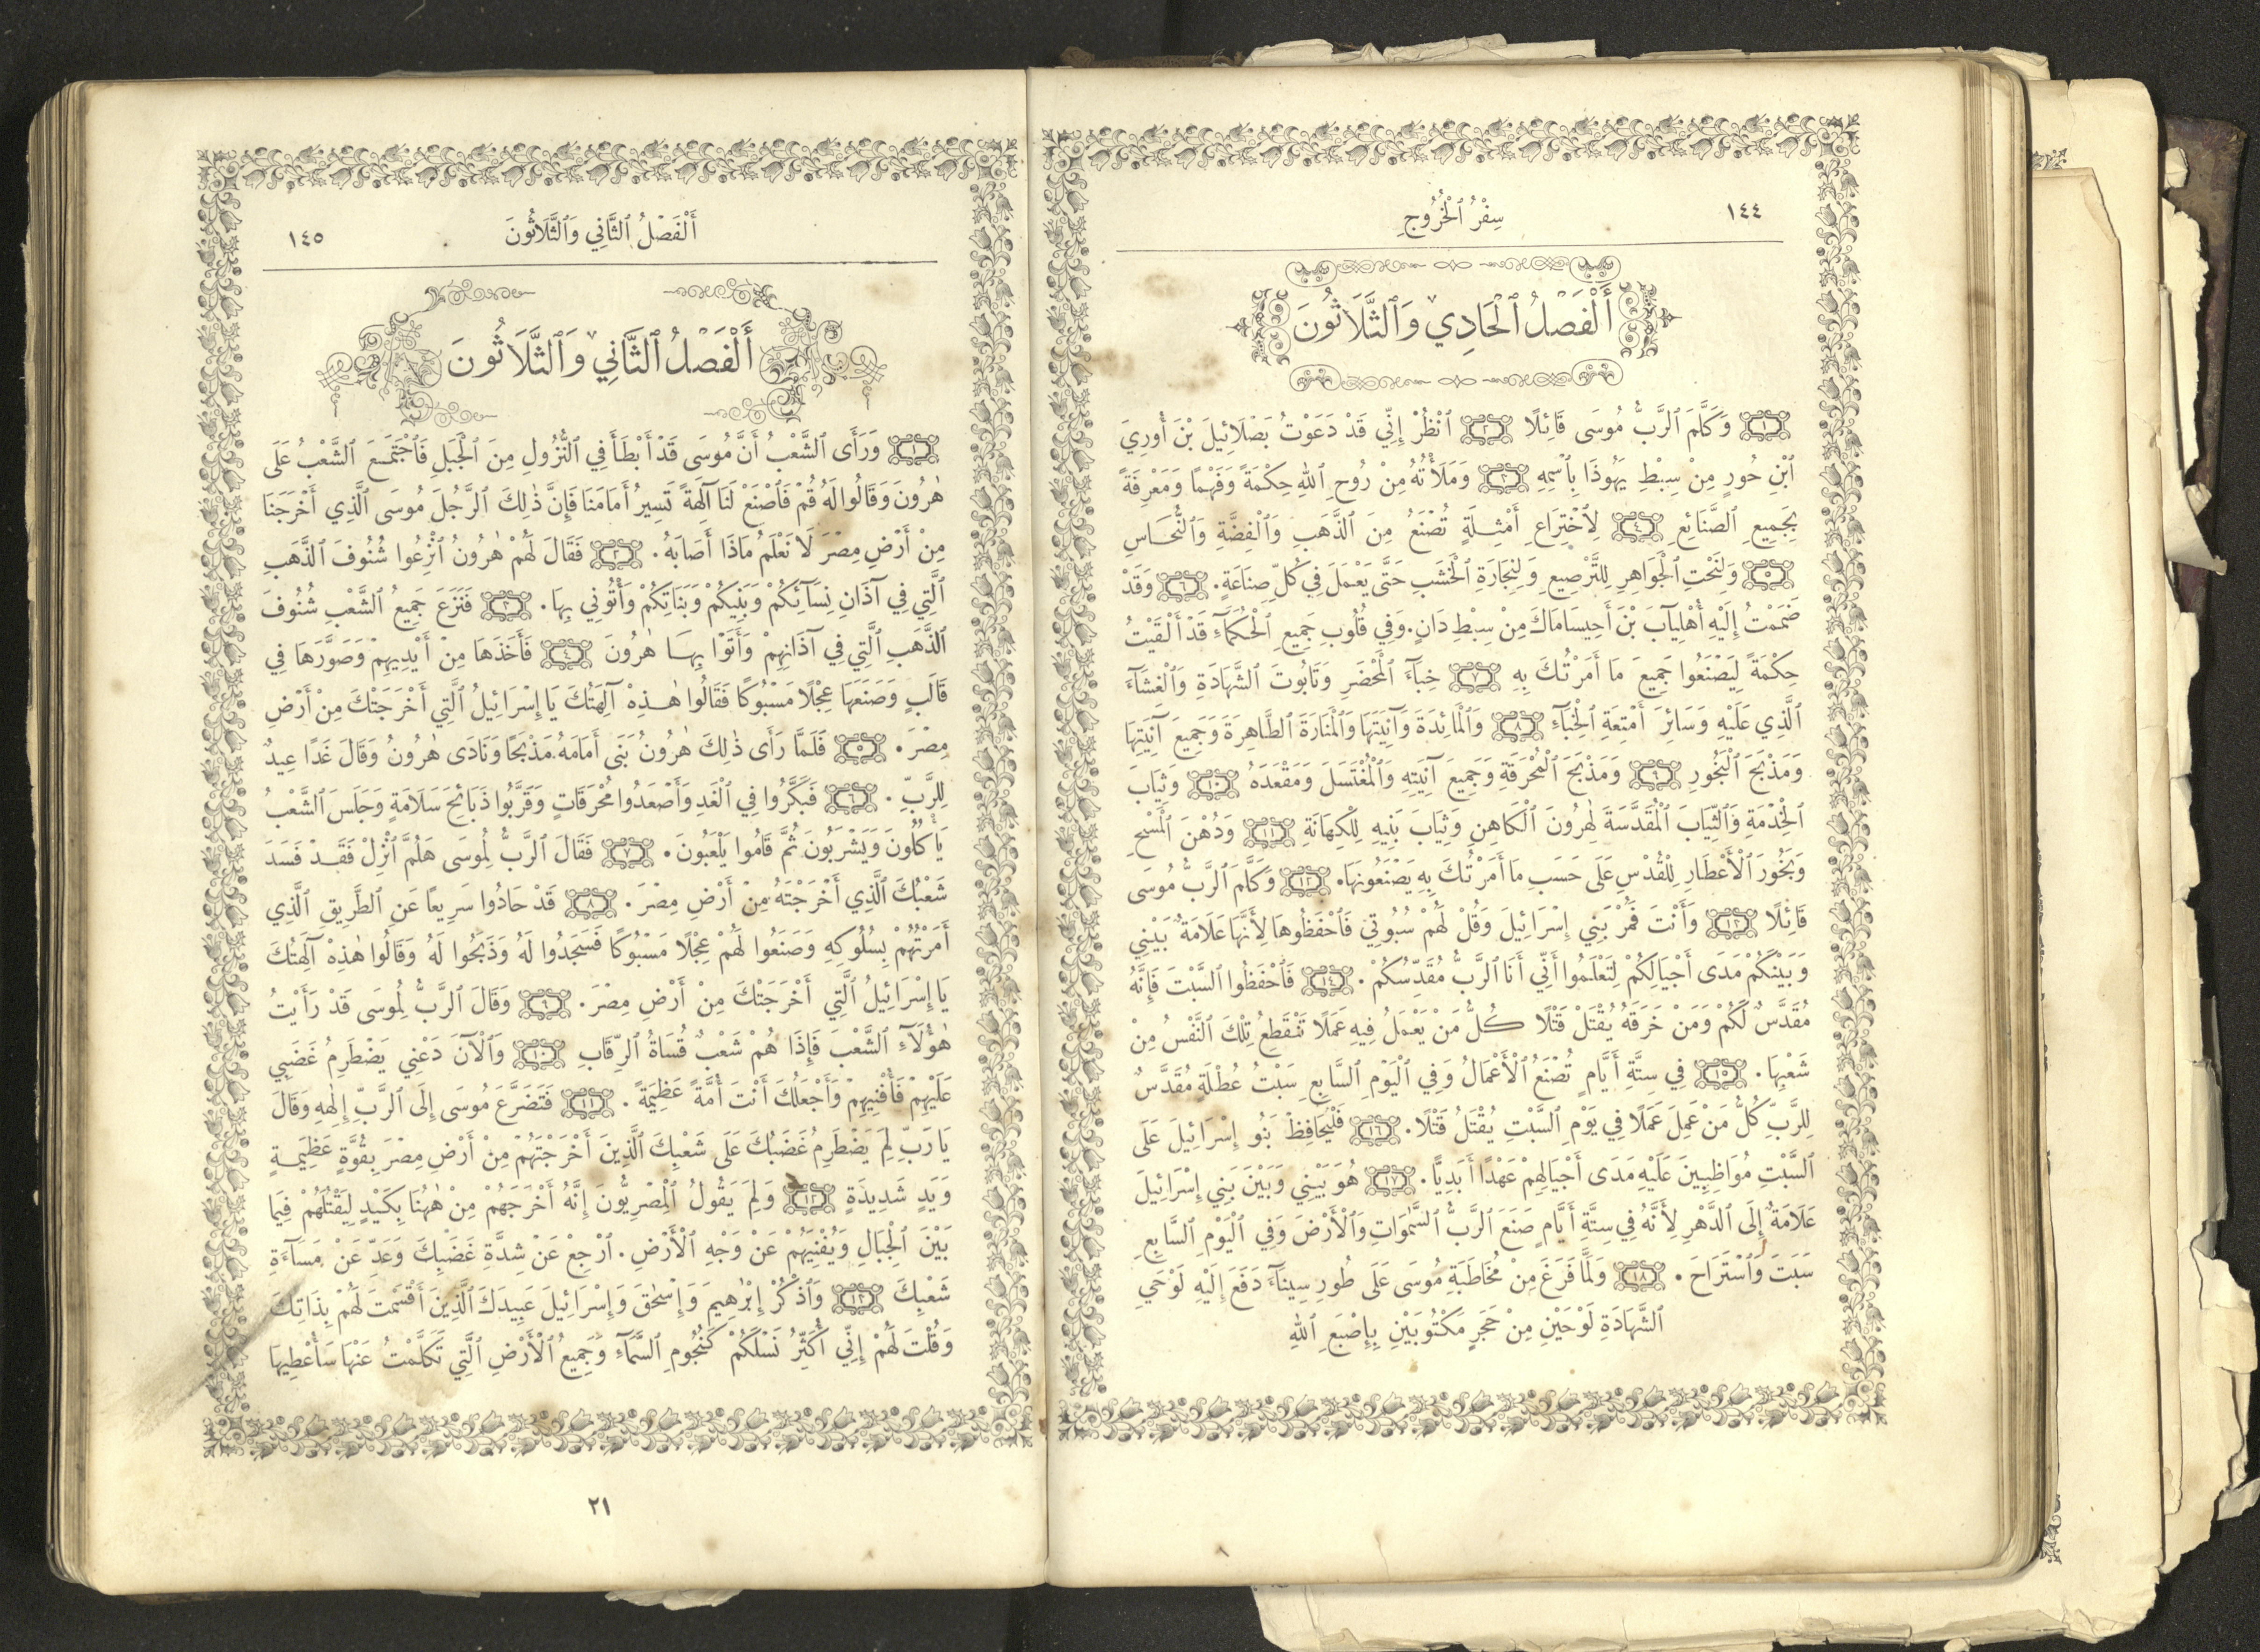 ١٤٤
سِفْرُ ٱلْخُرُوجِ
أَلْفَصْلُ ٱلْحَادِي وَٱلثَّلَاثُونَ
١ وَكَلَّمَ ٱلرَّبُّ مُوسَى قَائِلًا ٢ ٱنْظُرْ إِنِّي قَدْ دَعَوْتُ بَصَلَائِيلَ بْنَ أُورِيَ
ٱبْنِ حُورٍ مِنْ سِبْطِ يَهُوذَا بِٱسْمِهِ ٣ وَمَلَأْتُهُ مِنْ رُوحِ ٱللهِ حِكْمَةً وَفَهْمًا وَمَعْرِفَةً
بِجَمِيعِ ٱلصَّنَائِعِ ٤ لِٱخْتِرَاعِ أَمْثِلَةٍ تُصْنَعُ مِنَ ٱلذَّهَبِ وَٱلْفِضَّةِ وَٱلنُّحَاسِ
٥ وَلِنَحْتِ ٱلْجَوَاهِرِ لِلتَّرْصِيعِ وَلِنِجَارَةِ ٱلْخَشَبِ حَتَّى يَعْمَلَ فِي كُلِّ صِنَاعَةٍ. ٦ وَقَدْ
ضَمَمْتُ إِلَيْهِ أُهْلِيآبَ بْنَ أَحِيسَامَاكَ مِنْ سِبْطِ دَانٍ. وَفِي قُلُوبِ جَمِيعِ ٱلْحُكَمَآءِ قَدْ أَلْقَيْتُ
حِكْمَةً لِيَصْنَعُوا جَمِيعَ مَا أَمَرْتُكَ بِهِ ٧ خِبَآءَ ٱلْمَحْضَرِ وَتَابُوتَ ٱلشَّهَادَةِ وَٱلْغِشَآءَ
ٱلَّذِي عَلَيْهِ وَسَائِرَ أَمْتِعَةِ ٱلْخِبَآءِ ٨ وَٱلْمَائِدَةَ وَآنِيَتَهَا وَٱلْمَنَارَةَ ٱلطَّاهِرَةَ وَجَمِيعَ آنِيَتِهَا
وَمَذْبَحَ ٱلْبَخُورِ ٩ وَمَذْبَحَ ٱلْمُحْرَقَةِ وَجَمِيعَ آنِيَتِهِ وَٱلْمُغْتَسَلَ وَمَقْعَدَهُ ١٠ وَثِيَابَ
ٱلْخِدْمَةِ وَٱلثِّيَابَ ٱلْمُقَدَّسَةَ لِهٰرُونَ ٱلْكَاهِنِ وَثِيَابَ بَنِيهِ لِلْكِهَانَةِ ١١ وَدُهْنَ ٱلْمَسْحِ
وَبَخُورَ ٱلْأَعْطَارِ لِلْقُدْسِ عَلَى حَسَبِ مَا أَمَرْتُكَ بِهِ يَصْنَعُونَهَا. ١٢ وَكَلَّمَ ٱلرَّبُّ مُوسَى
قَائِلًا ١٣ وَأَنْتَ فَمُرْ بَنِي إِسْرَائِيلَ وَقُلْ لَهُمْ سُبُوتِي فَٱحْفَظُوهَا لِأَنَّهَا عَلَامَةٌ بَيْنِي
وَبَيْنَكُمْ مَدَى أَجْيَالِكُمْ لِتَعْلَمُوا أَنِّي أَنَا ٱلرَّبُّ مُقَدِّسُكُمْ. ١٤ فَٱحْفَظُوا ٱلسَّبْتَ فَإِنَّهُ
مُقَدَّسٌ لَكُمْ وَمَنْ خَرَقَهُ يُقْتَلْ قَتْلًا كُلُّ مَنْ يَعْمَلُ فِيهِ عَمَلًا تَنْقَطِعُ تِلْكَ ٱلنَّفْسُ مِنْ
شَعْبِهَا. ١٥ فِي سِتَّةِ أَيَّامٍ تُصْنَعُ ٱلْأَعْمَالُ وَفِي ٱلْيَوْمِ ٱلسَّابِعِ سَبْتُ عُطْلَةٍ مُقَدَّسٌ
لِلرَّبِّ كُلُّ مَنْ عَمِلَ عَمَلًا فِي يَوْمِ ٱلسَّبْتِ يُقْتَلُ قَتْلًا. ١٦ فَلْيُحَافِظْ بَنُو إِسْرَائِيلَ عَلَى
ٱلسَّبْتِ مُوَاظِبِينَ عَلَيْهِ مَدَى أَجْيَالِهِمْ عَهْدًا أَبَدِيًّا. ١٧ هُوَ بَيْنِي وَبَيْنَ بَنِي إِسْرَائِيلَ
عَلَامَةٌ إِلَى ٱلدَّهْرِ لِأَنَّهُ فِي سِتَّةِ أَيَّامٍ صَنَعَ ٱلرَّبُّ ٱلسَّمٰوَاتِ وَٱلْأَرْضَ وَفِي ٱلْيَوْمِ ٱلسَّابِعِ
سَبَتَ وَٱسْتَرَاحَ. ١٨ وَلَمَّا فَرَغَ مِنْ مُخَاطَبَةِ مُوسَى عَلَى طُورِ سِينَآءَ دَفَعَ إِلَيْهِ لَوْحَيِ
ٱلشَّهَادَةِ لَوْحَيْنِ مِنْ حَجَرٍ مَكْتُوبَيْنِ بِإِصْبَعِ ٱللهِ
أَلْفَصْلُ ٱلثَّانِي وَٱلثَّلَاثُونَ
١٤٥
أَلْفَصْلُ ٱلثَّانِي وَٱلثَّلَاثُونَ
١ وَرَأَى ٱلشَّعْبُ أَنَّ مُوسَى قَدْ أَبْطَأَ فِي ٱلنُّزُولِ مِنَ ٱلْجَبَلِ فَٱجْتَمَعَ ٱلشَّعْبُ عَلَى
هٰرُونَ وَقَالُوا لَهُ قُمْ فَٱصْنَعْ لَنَا آلِهَةً تَسِيرُ أَمَامَنَا فَإِنَّ ذٰلِكَ ٱلرَّجُلَ مُوسَى ٱلَّذِي أَخْرَجَنَا
مِنْ أَرْضِ مِصْرَ لَا نَعْلَمُ مَاذَا أَصَابَهُ. ٢ فَقَالَ لَهُمْ هٰرُونُ ٱنْزِعُوا شُنُوفَ ٱلذَّهَبِ
ٱلَّتِي فِي آذَانِ نِسَآئِكُمْ وَبَنِيكُمْ وَبَنَاتِكُمْ وَأْتُونِي بِهَا. ٣ فَنَزَعَ جَمِيعُ ٱلشَّعْبِ شُنُوفَ
ٱلذَّهَبِ ٱلَّتِي فِي آذَانِهِمْ وَأَتَوْا بِهَا هٰرُونَ ٤ فَأَخَذَهَا مِنْ أَيْدِيهِمْ وَصَوَّرَهَا فِي
قَالَبٍ وَصَنَعَهَا عِجْلًا مَسْبُوكًا فَقَالُوا هٰذِهْ آلِهَتُكَ يَا إِسْرَائِيلُ ٱلَّتِي أَخْرَجَتْكَ مِنْ أَرْضِ
مِصْرَ. ٥ فَلَمَّا رَأَى ذٰلِكَ هٰرُونُ بَنَى أَمَامَهُ مَذْبَحًا وَنَادَى هٰرُونُ وَقَالَ غَدًا عِيدٌ
لِلرَّبِّ. ٦ فَبَكَّرُوا فِي ٱلْغَدِ وَأَصْعَدُوا مُحْرَقَاتٍ وَقَرَّبُوا ذَبَائِحَ سَلَامَةٍ وَجَلَسَ ٱلشَّعْبُ
يَأْكُلُونَ وَيَشْرَبُونَ ثُمَّ قَامُوا يَلْعَبُونَ. ٧ فَقَالَ ٱلرَّبُّ لِمُوسَى هَلُمَّ ٱنْزِلْ فَقَدْ فَسَدَ
شَعْبُكَ ٱلَّذِي أَخْرَجْتَهُ مِنْ أَرْضِ مِصْرَ. ٨ قَدْ حَادُوا سَرِيعًا عَنِ ٱلطَّرِيقِ ٱلَّذِي
أَمَرْتُهُمْ بِسُلُوكِهِ وَصَنَعُوا لَهُمْ عِجْلًا مَسْبُوكًا فَسَجَدُوا لَهُ وَذَبَحُوا لَهُ وَقَالُوا هٰذِهْ آلِهَتُكَ
يَا إِسْرَائِيلُ ٱلَّتِي أَخْرَجَتْكَ مِنْ أَرْضِ مِصْرَ. ٩ وَقَالَ ٱلرَّبُّ لِمُوسَى قَدْ رَأَيْتُ
هٰؤُلَآءِ ٱلشَّعْبَ فَإِذَا هُمْ شَعْبٌ قُسَاةُ ٱلرِّقَابِ ١٠ وَٱلْآنَ دَعْنِي يَضْطَرِمُ غَضَبِي
عَلَيْهِمْ فَأُفْنِيهِمْ وَأَجْعَلُكَ أَنْتَ أُمَّةً عَظِيمَةً. ١١ فَتَضَرَّعَ مُوسَى إِلَى ٱلرَّبِّ إِلٰهِهِ وَقَالَ
يَا رَبِّ لِمَ يَضْطَرِمُ غَضَبُكَ عَلَى شَعْبِكَ ٱلَّذِينَ أَخْرَجْتَهُمْ مِنْ أَرْضِ مِصْرَ بِقُوَّةٍ عَظِيمَةٍ
وَيَدٍ شَدِيدَةٍ ١٢ وَلِمَ يَقُولُ ٱلْمِصْرِيُّونَ إِنَّهُ أَخْرَجَهُمْ مِنْ هٰهُنَا بِكَيْدٍ لِيَقْتُلَهُمْ فِيمَا
بَيْنَ ٱلْجِبَالِ وَيُفْنِيَهُمْ عَنْ وَجْهِ ٱلْأَرْضِ. ٱرْجِعْ عَنْ شِدَّةِ غَضَبِكَ وَعَدِّ عَنْ مَسَآءَةِ
شَعْبِكَ ١٣ وَٱذْكُرْ إِبْرٰهِيمَ وَإِسْحٰقَ وَإِسْرَائِيلَ عَبِيدَكَ ٱلَّذِينَ أَقْسَمْتَ لَهُمْ بِذَاتِكَ
وَقُلْتَ لَهُمْ إِنِّي أُكَثِّرُ نَسْلَكُمْ كَنُجُومِ ٱلسَّمَآءِ وَجَمِيعُ ٱلْأَرْضِ ٱلَّتِي تَكَلَّمْتُ عَنْهَا سَأُعْطِيهَا
٢١